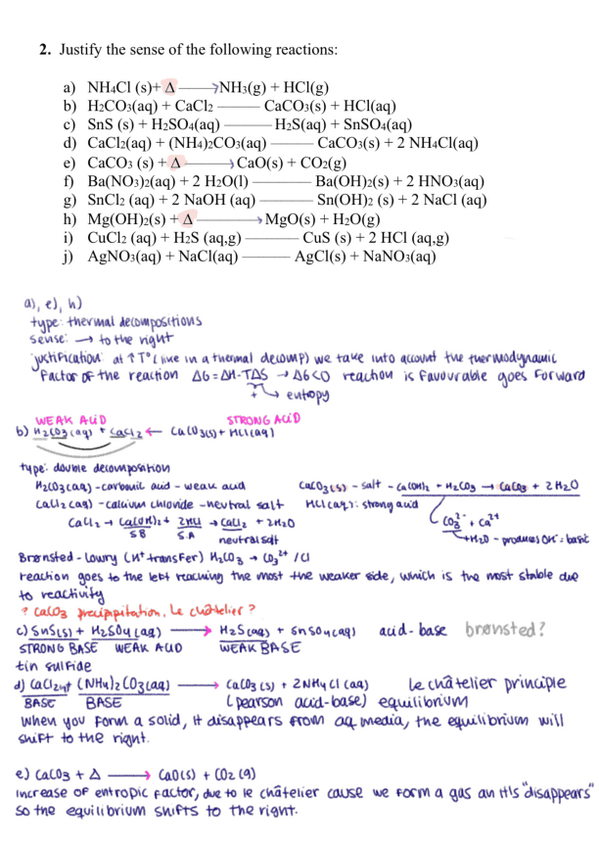 2. Justify the sense of the following reactions:
a) NH4Cl (s)+ Δ → NH3(g) + HCl(g)
b) H2CO3(aq) + CaCl2 —— CaCO3(s) + HCl(aq)
c) SnS (s) + H2SO4(aq) —— H2S(aq) + SnSO4(aq)
d) CaCl2(aq) + (NH4)2CO3(aq) —— CaCO3(s) + 2 NH4Cl(aq)
e) CaCO3 (s) + Δ → CaO(s) + CO2(g)
f) Ba(NO3)2(aq) + 2 H2O(l) —— Ba(OH)2(s) + 2 HNO3(aq)
g) SnCl2 (aq) + 2 NaOH (aq) —— Sn(OH)2 (s) + 2 NaCl (aq)
h) Mg(OH)2(s) + Δ → MgO(s) + H2O(g)
i) CuCl2 (aq) + H2S (aq,g) —— CuS (s) + 2 HCl (aq,g)
j) AgNO3(aq) + NaCl(aq) —— AgCl(s) + NaNO3(aq)
a), e), h)
type: thermal decompositions
sense: → to the right
justification: at ↑ Tº (like in a thermal decomp) we take into account the thermodynamic
factor of the reaction ΔG = ΔH-TΔS → ΔG<0 reaction is favourable goes forward
+ → entropy
WEAK ACID STRONG ACID
b) H2CO3(aq) + CaCl2 ← CaCO3(s) + HCl(aq)
type: double decomposition
H2CO3(aq) - carbonic acid - weak acid
CaCl2(aq) - calcium chloride - neutral salt
CaCl2 → Ca(OH)2 + 2HCl → CaCl2 + 2H2O
SB S.A neutral salt
CaCO3(s) - salt - Ca(OH)2 + H2CO3 → CaCO3 + 2H2O
HCl(aq): strong acid
CO3²⁻ + Ca²⁺
+H2O - produces OH⁻: basic
Brønsted-Lowry (H⁺ transfer) H2CO3 → CO3²⁺ / Cl
reaction goes to the left reaching the most the weaker side, which is the most stable due
to reactivity
? CaCO3 precippitation. Le châtelier?
c) SnS(s) + H2SO4(aq) → H2S(aq) + SnSO4(aq) acid-base brønsted?
STRONG BASE WEAK ACID WEAK BASE
tin sulfide
d) CaCl2 + (NH4)2CO3(aq) → CaCO3(s) + 2NH4Cl(aq) Le châtelier principle
BASE BASE (pearson acid-base) equilibrium
When you form a solid, it disappears from aq media, the equilibrium will
shift to the right.
e) CaCO3 + Δ → CaO(s) + CO2(g)
Increase of entropic factor, due to le châtelier cause we form a gas an it's "disappears"
so the equilibrium shifts to the right.